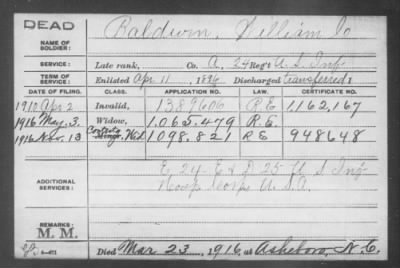 DEAD
NAME OF SOLDIER: Baldwin, William Jo
SERVICE: Late rank, Co. A, 24 Reg't U.S. Inf
TERM OF SERVICE: Enlisted Apr. 11 1896 Discharged transferred
DATE OF FILING. CLASS. APPLICATION NO. LAW. CERTIFICATE NO.
1910 Apr 2 Invalid, 1389606 R E 1162,167
1916 May, 3. Widow, 1,065,479 R E.
1916 Nov. 13 Wid 1098,821 R E 948648
ADDITIONAL SERVICES: E 24 E & D 25 U.S. Inf
Hosp Corps U.S.A.
REMARKS:
M. M.
Died Mar 23, 1916, at Asheboro, N.C.